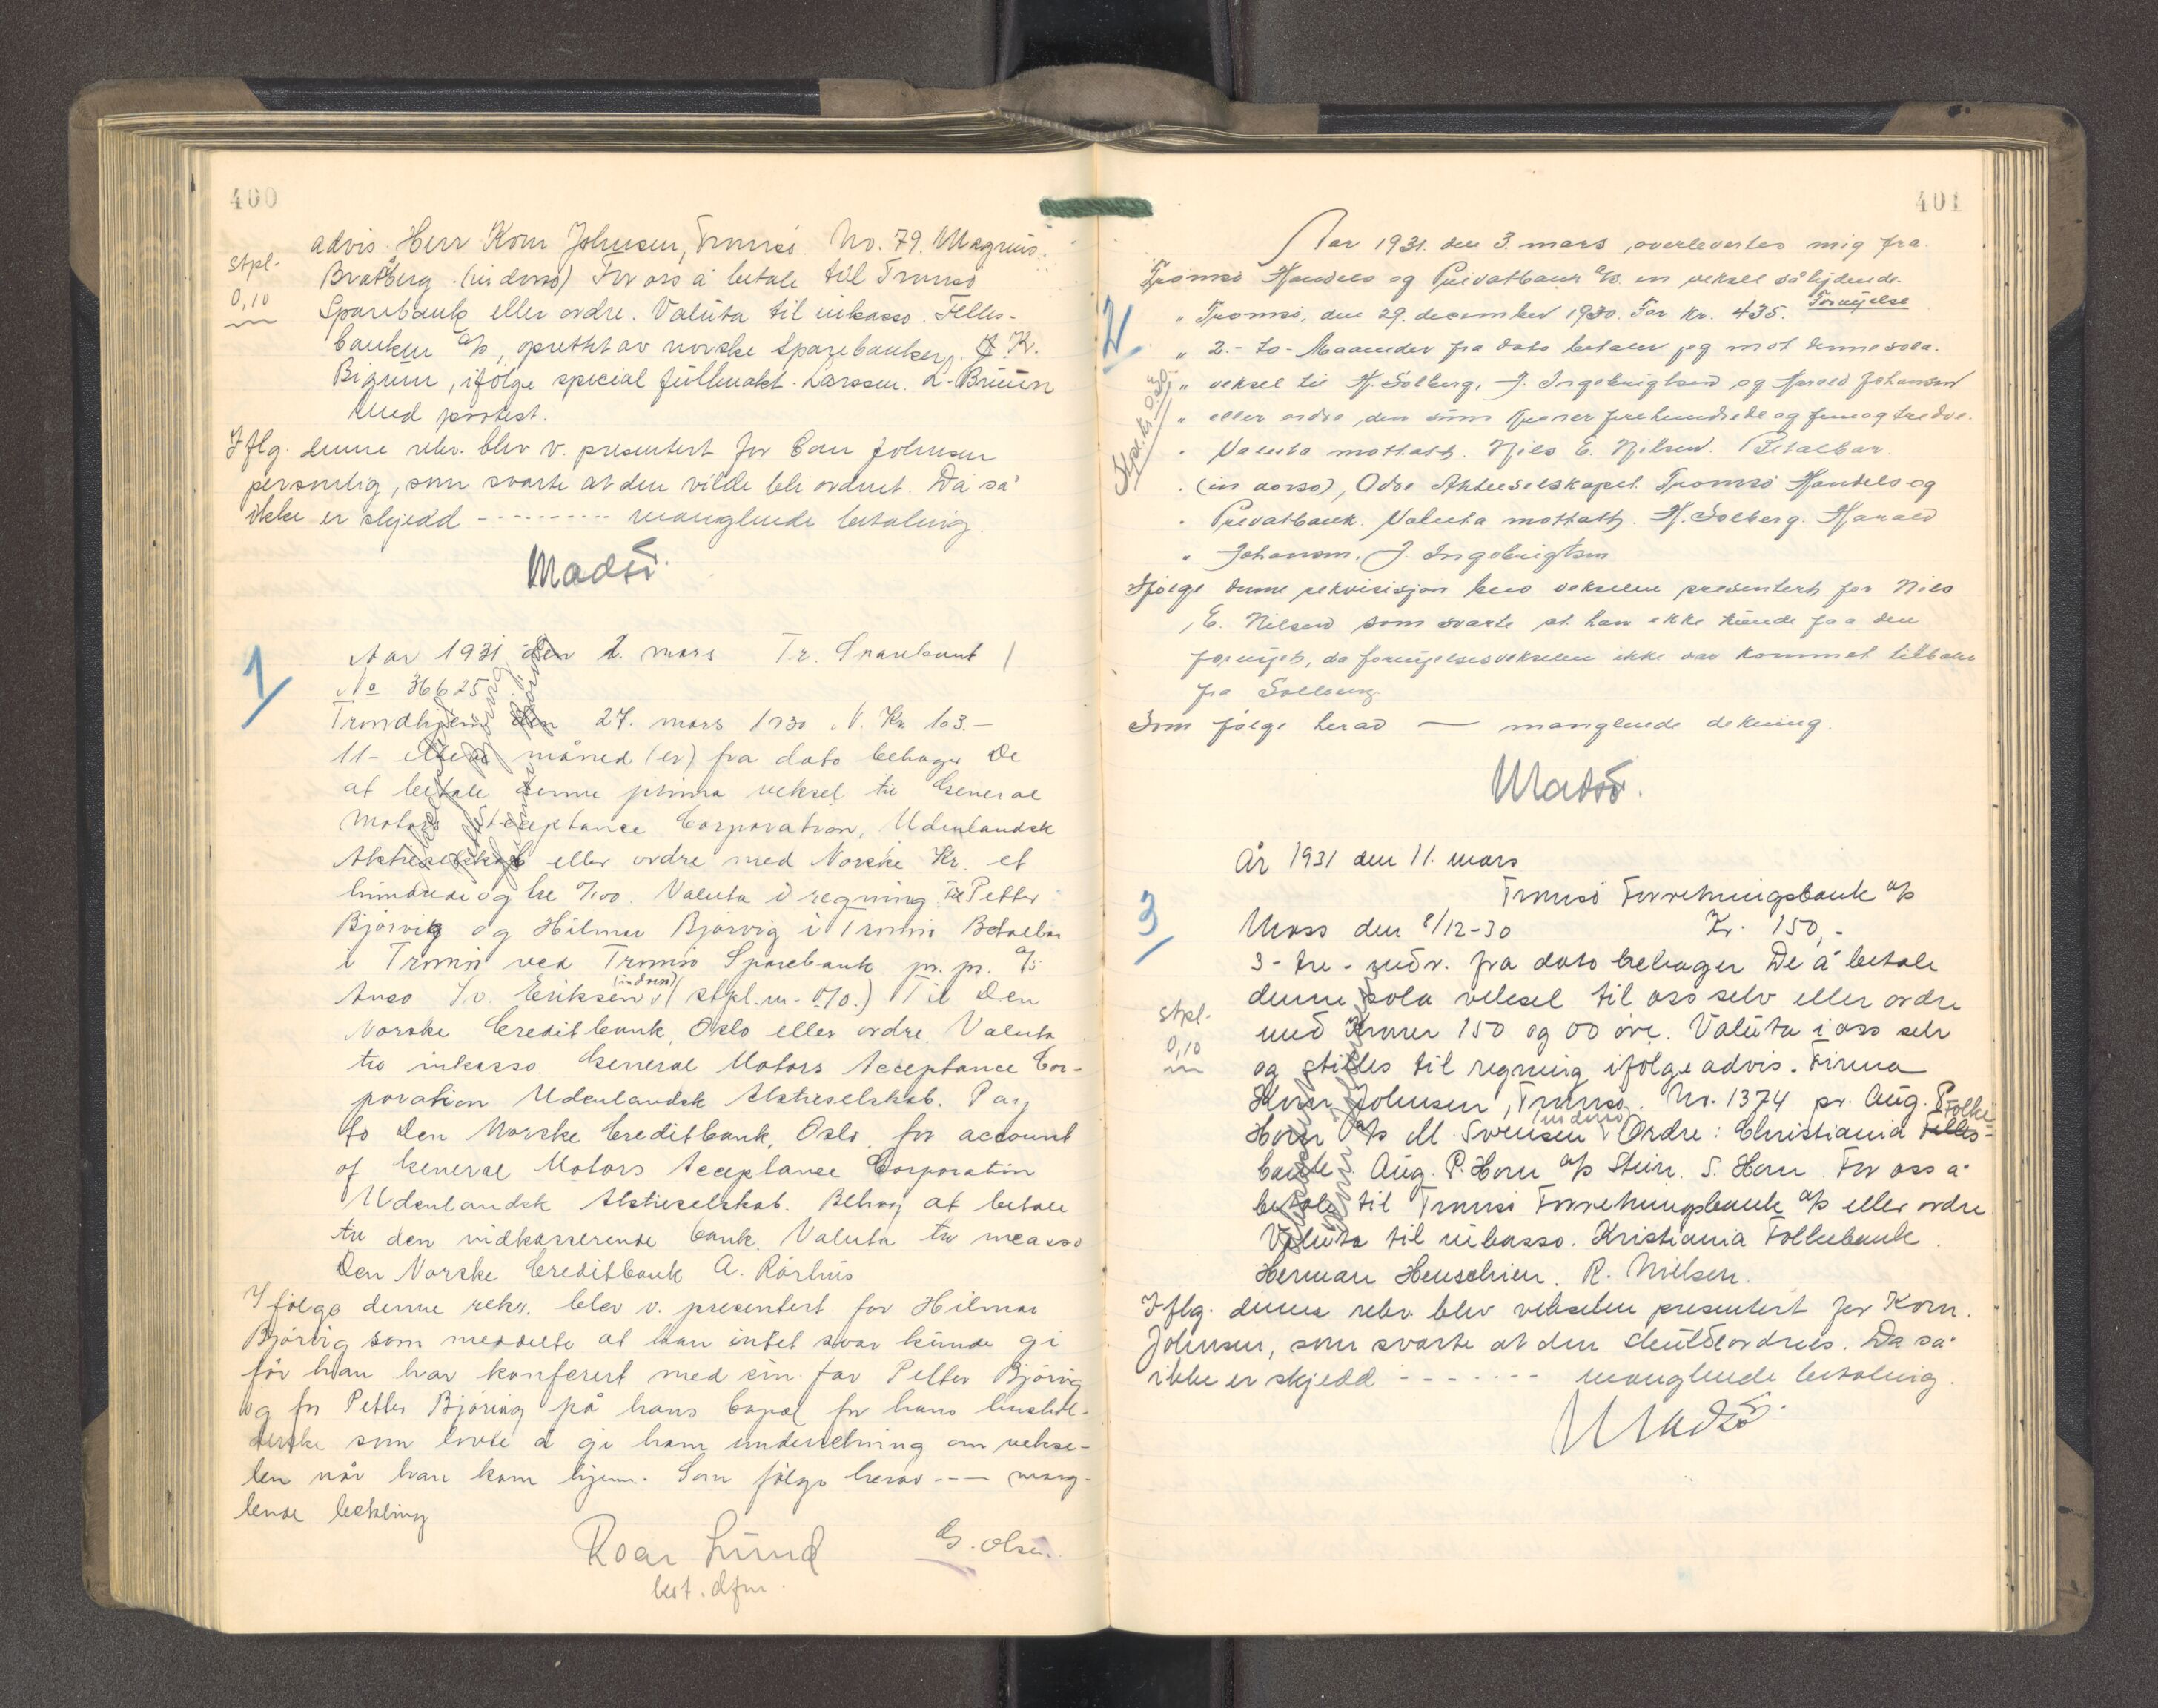 400
advis. Herr Korn Johnsen, Tromsö. No. 79. Magnus
stpl. 0,10
Bratberg. (in dorso) For oss å betale til Tromsö
Sparebank eller ordre. Valuta til inkasso. Felles-
banken A/s, oprettet av norske Sparebanker.
ifölge special fullmakt. Larssen. L. Bruun
med protest.
Iflg. denne rekv. blev v. presentert for Corn Johnsen
personlig, som svarte at den vilde bli ordnet. Da så
ikke er skjedd ---------- manglende betaling.
Madsö.
1/
Aar 1931 den 2. mars Tr. Sparebank
No 36625
Trondhjem den 27. mars 1930 N. Kr. 103.-
11- måned (er) fra dato behager De
at betale denne prima veksel til General
Motors Acceptance Corporation, Udenlandsk
Aktieselskab eller ordre med Norske Kr. et
hundrede og tre 0/100. Valuta i regning til Petter
Bjørvig og Hilmar Bjørvig i Tromsö Betalbar
i Tromsö ved Tromsö Sparebank pr. pr. A/s
Auso Sv. Eriksen (in dorso) (stpl. m. 0/0.) Til Den
Norske Creditbank, Oslo eller ordre. Valuta
til inkasso. General Motors Acceptance Cor-
poration Udenlandsk Aktieselskab. Pay
to Den Norske Creditbank, Oslo, for account
of General Motors Acceptance Corporation
Udenlandsk Aktieselskab. Behag at betale
til den indkasserende bank. Valuta til incasso
Den Norske Creditbank A. Rörhus
Ifölge denne rekv. blev v. presentert for Hilmar
Bjørvig som meddelte at han intet svar kunde gi
för han har konferert med sin far Petter Bjørvig
og for Petter Bjørvig på hans bopæl for hans hushol-
derske som lovde å gi ham underretning om vekse-
len når han kom hjem. Som fölge herav --- mang-
lende betaling
Roar Lund G. Olsen.
kst. dfm.
401
Aar 1931. den 3. mars, overlevertes mig fra
Tromsö Handels og Privatbank A/s. en veksel sålydende.
2/
" Tromsö, den 29. december 1930. For Kr. 435. Fornyelse
" 2.- to- Maaneder fra dato betaler jeg mot denne sola.
" veksel til H. Solberg, J. Ingebrigtsen og Harald Johansen
" eller ordre, den sum kroner firehundrede og femogtredve.
" Valuta mottatt. Nils E. Nilsen. Betalbar.
" (in dorso), Ordre Aktieselskapet Tromsö Handels og
" Privatbank. Valuta mottatt. H. Solberg. Harald
" Johansen. J. Ingebrigtsen
Ifölge denne rekvisisjon blev vekselen presentert for Nils
E. Nilsen som svarte at han ikke kunde faa den
fornyet, da fornyelsesvekselen ikke var kommet tilbake
fra Solberg.
Som fölge herav — manglende dekning.
Madsö.
År 1931 den 11. mars
Tromsö Forretningsbank A/s
3/
Moss den 8/12-30 Kr. 150,-
3- tre - mdr. fra dato behager De å betale
denne sola veksel til oss selv eller ordre
stpl. 0,10
med Kroner 150 og 00 öre. Valuta i oss selv
og stilles til regning ifölge advis. Firma
Korn Johnsen, Tromsö. No. 1374 pr. Aug. P.
Horn A/s M. Svensen in dorso Ordre: Christiania Folke-
bank. Aug. P. Horn A/s Stein. S. Horn. For oss å
betale til Tromsö Forretningsbank A/s eller ordre
Valuta til inkasso. Kristiania Folkebank.
Herman Henschien. R. Nielsen.
Iflg. denne rekv. blev vekselen presentert for Korn.
Johnsen, som svarte at den skulde ordnes. Da så
ikke er skjedd ------- manglende betaling.
Madsö.